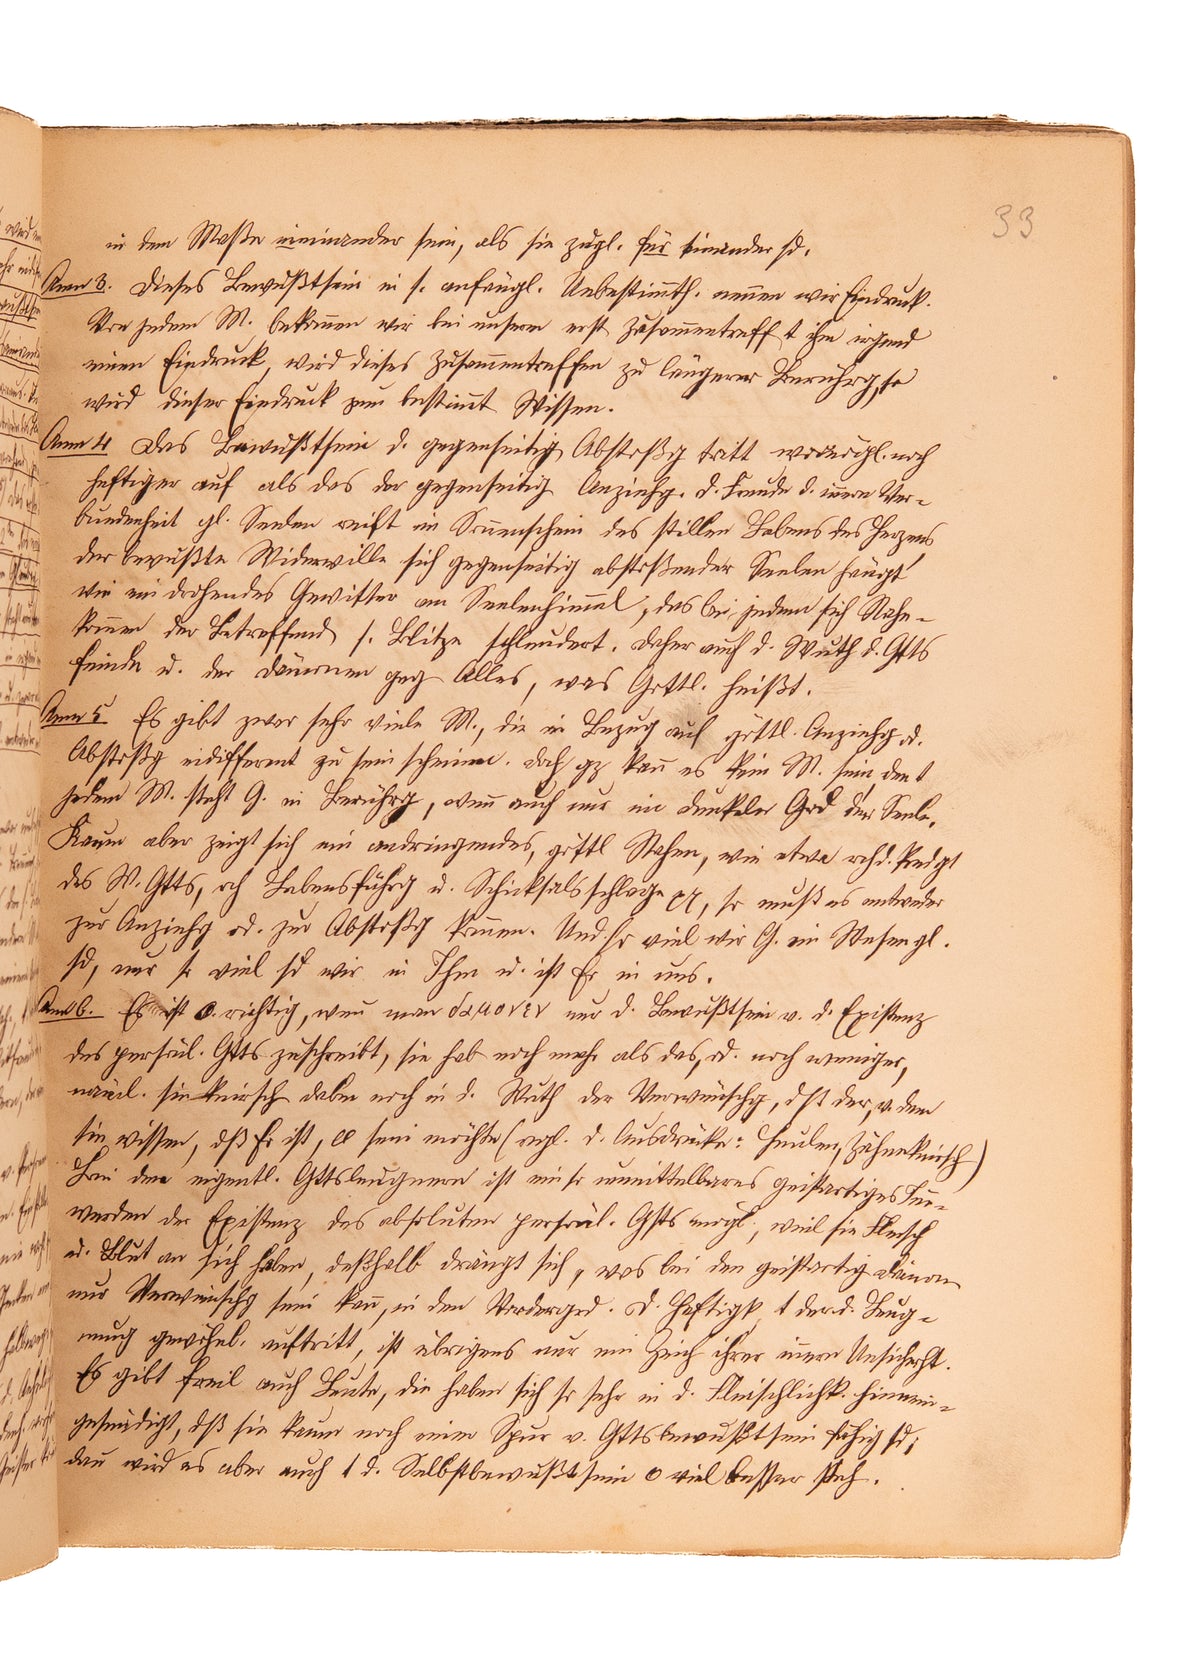 33
in dem Maße ineinander sein, als sie zugl. für einander sd.
Anm 3. Dieses Bewußtsein in s. anfängl. Unbestimmth. nennen wir Eindruck.
Von jedem M. bekommen wir bei unserm erst Zusammentreff t ihm irgend
einen Eindruck, wird dieses Zusammentreffen zu längerer Berührg, so
wird dieser Eindruck zum bestimmt Wissen.
Anm 4 Das Bewußtsein d. gegenseitig Abstoßg tritt womögl. noch
heftiger auf als das der gegenseitig Anziehg. d. Freude d. innern Ver-
bundenheit gl. Seelen reift im Sonnenschein des stillen Lebens des Herzens
der bewußte Widerwille sich gegenseitig abstoßender Seelen hängt
wie ein drohendes Gewitter am Seelenhimmel, das bei jedem sich Nahe-
kommen der Betreffend s. Blitze schleudert. Daher auch d. Wuth d. Gtts
feinde u. der Dämonen geg Alles, was Göttl. heißt.
Anm 5 Es gibt zwar sehr viele M., die in Bezug auf göttl. Anziehg od.
Abstoßg indifferent zu sein scheinen. doch gz kann es kein M. sein, den t
jedem M. steht G. in Berührg, wenn auch nur im dunkeln Grd der Seele.
Kaum aber zeigt sich ein andringendes, göttl Nahen, wie etwa Predgt
des W. Gtts, Lebensführg u. Schicksalsschlage so muß es entweder
zur Anziehg od. zur Abstoßg kommen. Und so viel wir G. im Wesen gl.
sd, nur so viel sd wir in Ihm u. ist Er in uns.
Anm 6. Es ist o. richtig, wenn man nur d. Bewußtsein v. d. Existenz
des persönl. Gtts zuschreibt, sie hab noch mehr als das, od. noch weniger,
nämml. sie knirsch dabei noch in d. Wuth der Verwünschg, dß der, v. dem
sie wissen, dß Er ist, sein möchte (vrgl. d. Ausdrücke: Heulen, Zähneknirsch)
Bei den eigentl. Gttsleugnern ist ein so unmittelbares geistartiges Inne-
werden der Existenz des absoluten persönl. Gtts mögl., weil sie Fleisch
u. Blut an sich haben, deßhalb drängt sich, was bei den geistartig Dämon
nur Verwünschg sein kann, in den Vordergrd. D. Heftigk t der d. Leug-
nung gewöhnl. auftritt, ist übrigens nur ein Zeich ihrer innern Unsicherht.
Es gibt freil auch Leute, die haben sich so sehr in d. Fleischlichk. hinein-
gesündigt, dß sie kaum noch einer Spur v. Gttsbewußtsein fähig sd;
dann wird es aber auch t d. Selbstbewußtsein o viel besser steh.